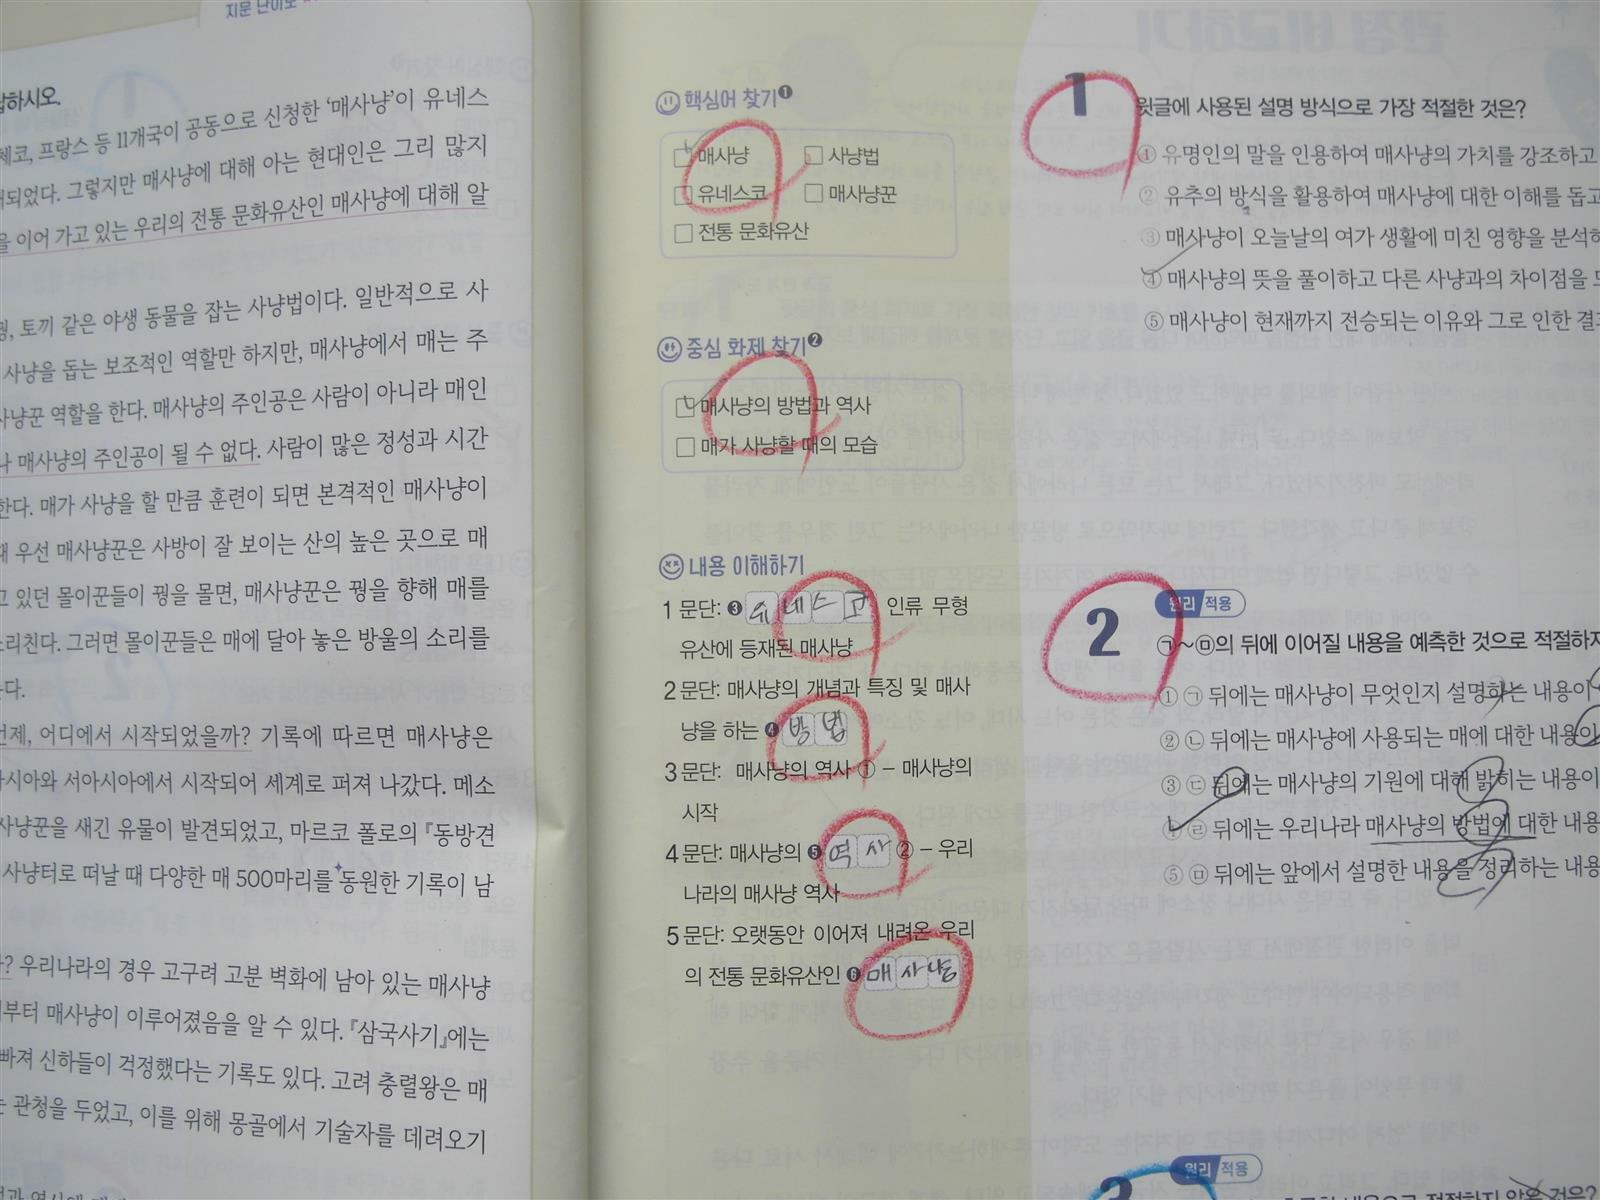 지문 난이도
답하시오.
11개국이 공동으로 신청한 '매사냥'이 유네스
체코, 프랑스 등
되었다. 그렇지만 매사냥에 대해 아는 현대인은 그리 많지
을 이어 가고 있는 우리의 전통 문화유산인 매사냥에 대해 알
꿩, 토끼 같은 야생 동물을 잡는 사냥법이다. 일반적으로 사
사냥을 돕는 보조적인 역할만 하지만, 매사냥에서 매는 주
사냥꾼 역할을 한다. 매사냥의 주인공은 사람이 아니라 매인
나 매사냥의 주인공이 될 수 없다. 사람이 많은 정성과 시간
한다. 매가 사냥을 할 만큼 훈련이 되면 본격적인 매사냥이
때 우선 매사냥꾼은 사방이 잘 보이는 산의 높은 곳으로 매
고 있던 몰이꾼들이 꿩을 몰면, 매사냥꾼은 꿩을 향해 매를
소리친다. 그러면 몰이꾼들은 매에 달아 놓은 방울의 소리를
는다.
언제, 어디에서 시작되었을까? 기록에 따르면 매사냥은
아시아와 서아시아에서 시작되어 세계로 퍼져 나갔다. 메소
사냥꾼을 새긴 유물이 발견되었고, 마르코 폴로의 『동방견
사냥터로 떠날 때 다양한 매 500마리를 동원한 기록이 남
까? 우리나라의 경우 고구려 고분 벽화에 남아 있는 매사냥
부터 매사냥이 이루어졌음을 알 수 있다. 『삼국사기』에는
빠져 신하들이 걱정했다는 기록도 있다. 고려 충렬왕은 매
는 관청을 두었고, 이를 위해 몽골에서 기술자를 데려오기
핵심어 찾기❶
매사냥 사냥법
유네스코 매사냥꾼
전통 문화유산
중심 화제 찾기❷
매사냥의 방법과 역사
매가 사냥할 때의 모습
내용 이해하기
1 문단: ❸ 유네스코 인류 무형
유산에 등재된 매사냥
2 문단: 매사냥의 개념과 특징 및 매사
냥을 하는 ❹ 방법
3 문단: 매사냥의 역사 ① - 매사냥의
시작
4 문단: 매사냥의 ❺ 역사 ② – 우리
나라의 매사냥 역사
5 문단: 오랫동안 이어져 내려온 우리
의 전통 문화유산인 ❻ 매사냥
1
윗글에 사용된 설명 방식으로 가장 적절한 것은?
① 유명인의 말을 인용하여 매사냥의 가치를 강조하고
② 유추의 방식을 활용하여 매사냥에 대한 이해를 돕고
③ 매사냥이 오늘날의 여가 생활에 미친 영향을 분석하
④ 매사냥의 뜻을 풀이하고 다른 사냥과의 차이점을
⑤ 매사냥이 현재까지 전승되는 이유와 그로 인한 결과
2
원리 적용
㉠~㉤의 뒤에 이어질 내용을 예측한 것으로 적절하지
① ㉠ 뒤에는 매사냥이 무엇인지 설명하는 내용이
② ㉡ 뒤에는 매사냥에 사용되는 매에 대한 내용이
③ ㉢ 뒤에는 매사냥의 기원에 대해 밝히는 내용이
④ ㉣ 뒤에는 우리나라 매사냥의 방법에 대한 내용
⑤ ㉤ 뒤에는 앞에서 설명한 내용을 정리하는 내용
3
원리 적용
내용으로 적절하지 않은 것은?